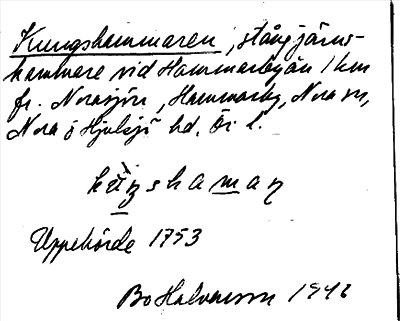 Kungshammaren, stångjärns-
hammare vid Hammarbyån 1 km
fr. Norasjön, Hammarby, Nora sn,
Nora o Hjulsjö hd, Ör l.
kùŋshamaŋ
Upphörde 1753
Bo Halvarson 1946